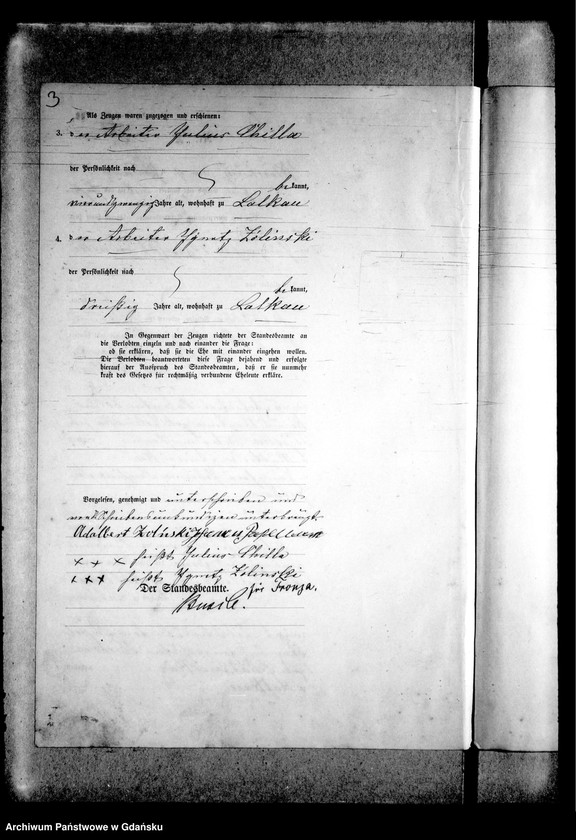 3
Als Zeugen waren zugezogen und erschienen:
3. der Arbeiter Julius Chilla
der Persönlichkeit nach
be kannt,
vierundzwanzig Jahre alt, wohnhaft zu Lalkau
4. der Arbeiter Ignatz Zolinski
der Persönlichkeit nach
be kannt,
dreißig Jahre alt, wohnhaft zu Lalkau
In Gegenwart der Zeugen richtete der Standesbeamte an
die Verlobten einzeln und nach einander die Frage:
ob sie erklären, daß sie die Ehe mit einander eingehen wollen.
Die Verlobten beantworteten diese Frage bejahend und erfolgte
hierauf der Ausspruch des Standesbeamten, daß er sie nunmehr
kraft des Gesetzes für rechtmäßig verbundene Eheleute erkläre.
Vorgelesen, genehmigt und unterschrieben und
unterkreuzt
Adalbert Zolinski
+ + + heißt Julius Chilla
+ + + heißt Ignatz Zolinski
Der Standesbeamte.
Archiwum Państwowe w Gdańsku